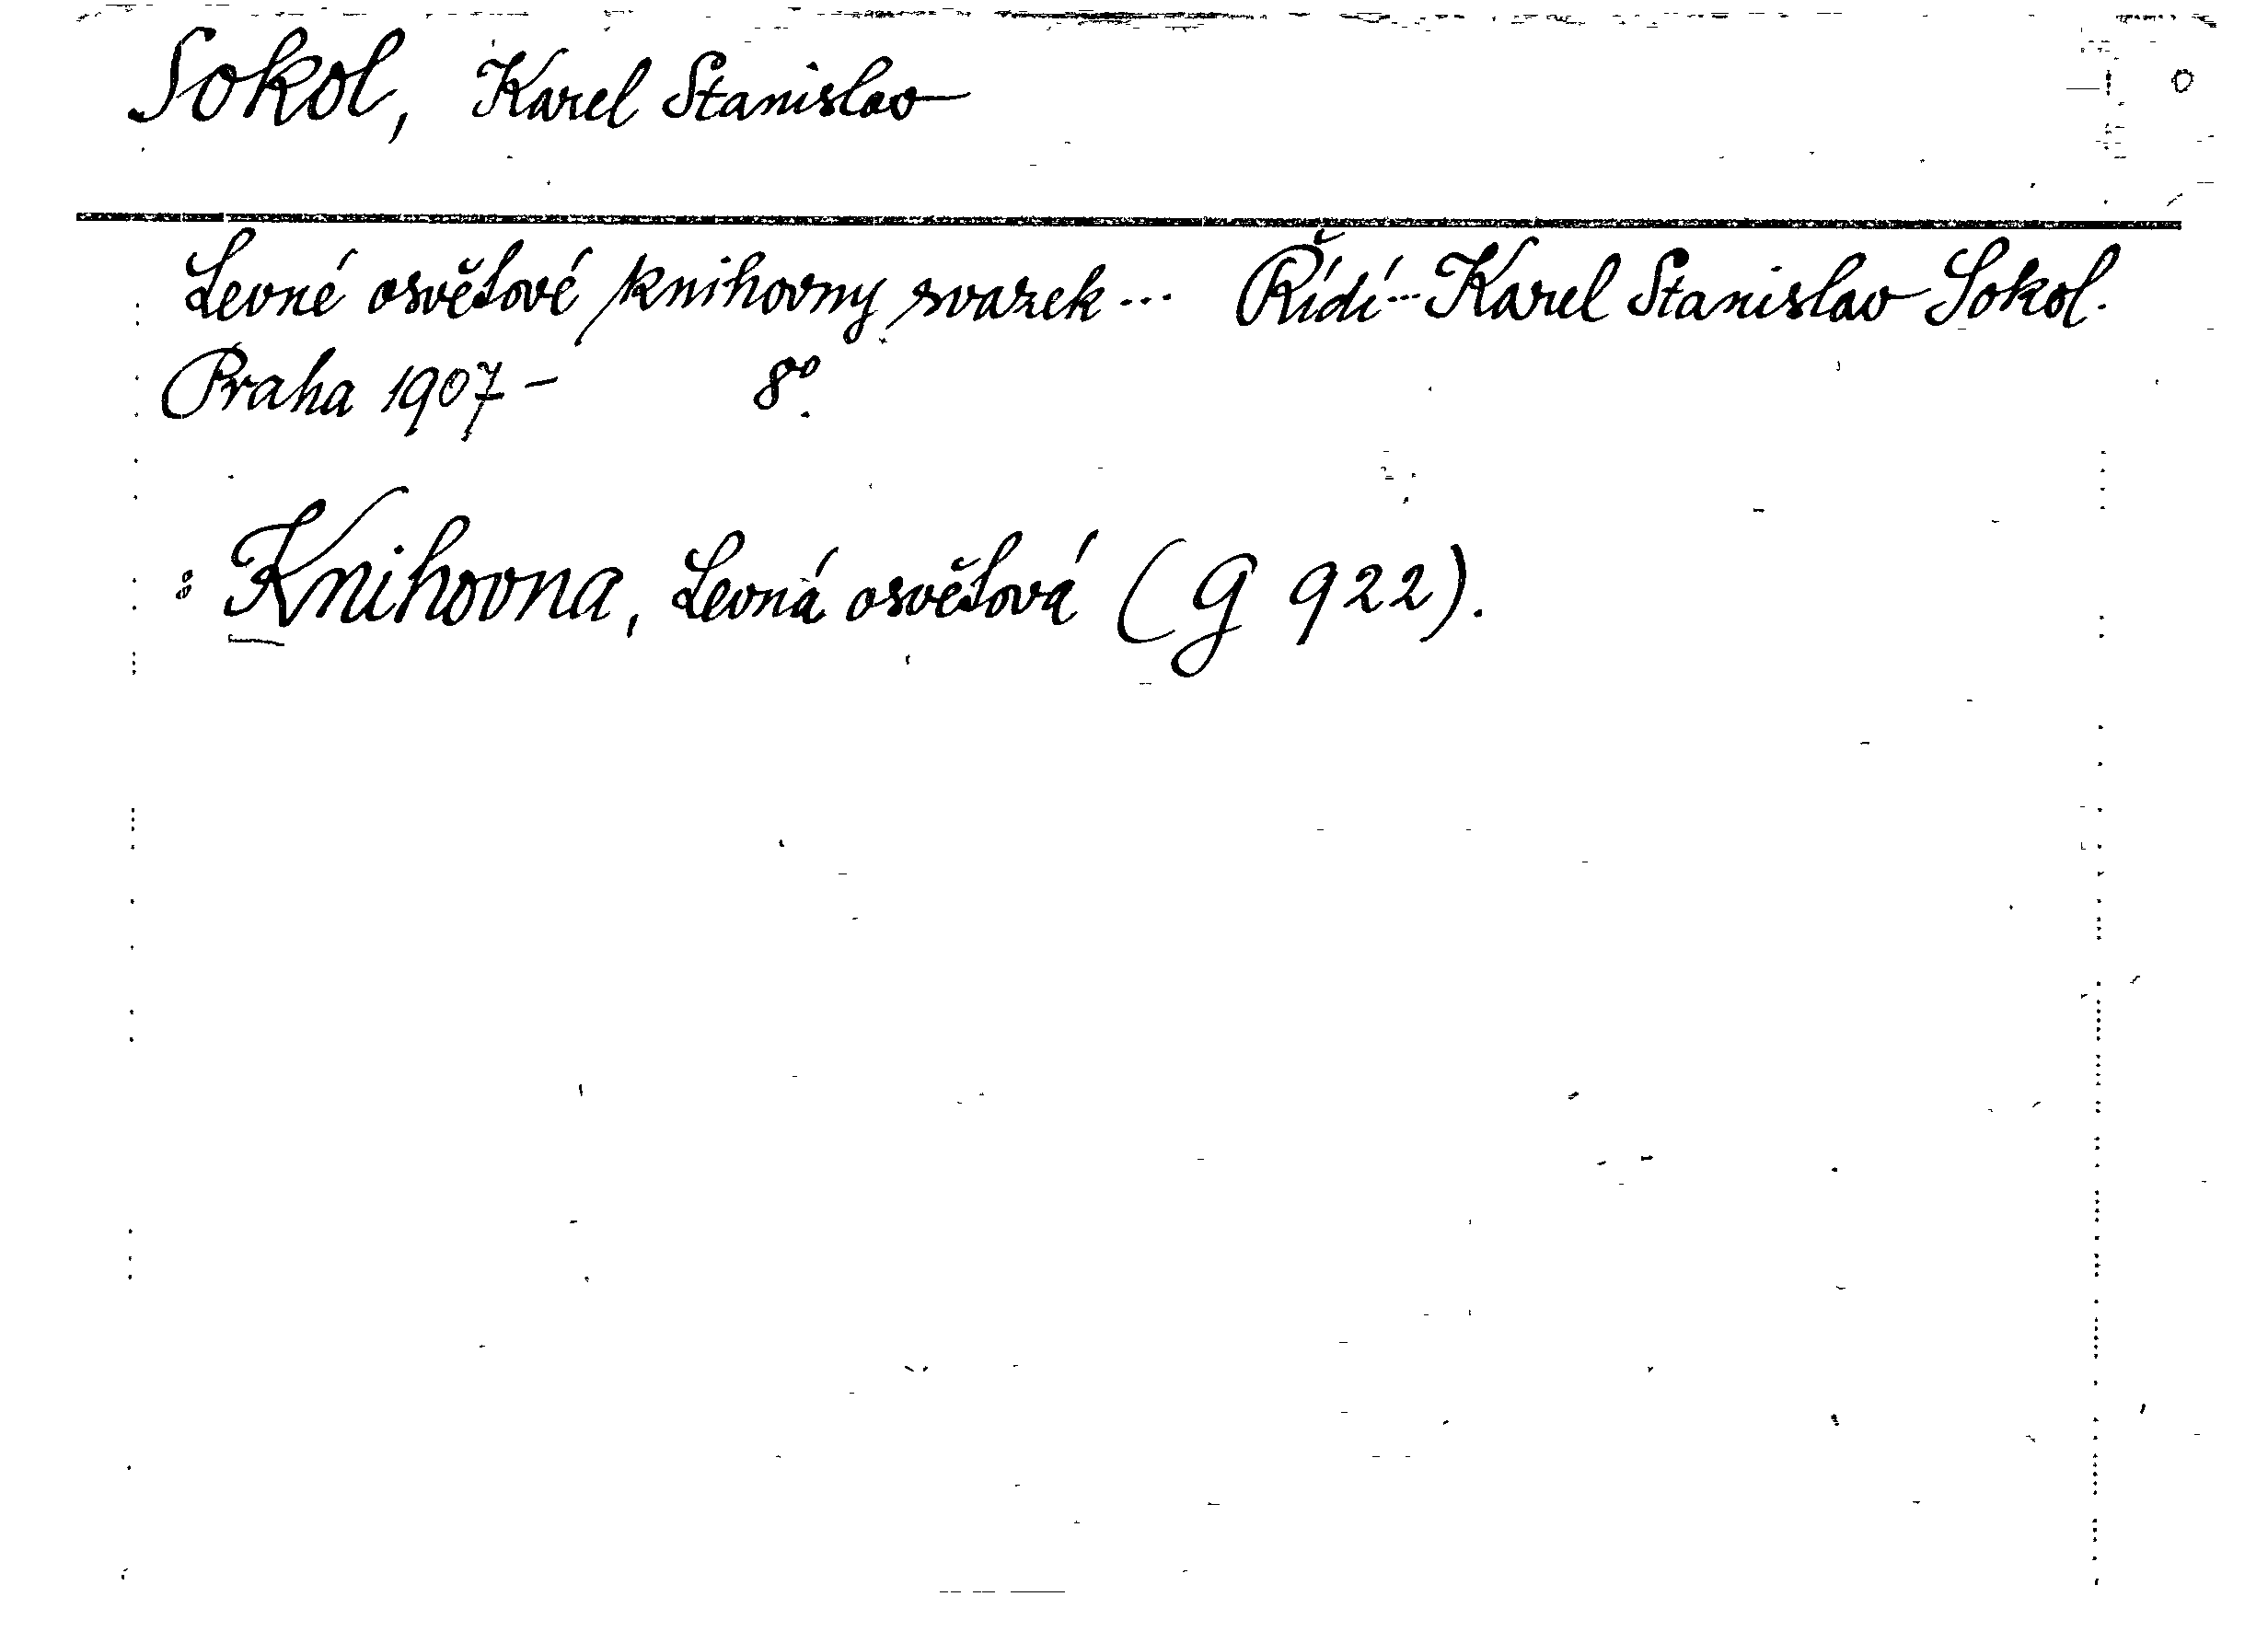 Sokol, Karel Stanislav
Levné osvětové knihovny svazek... Řídí... Karel Stanislav Sokol.
Praha 1907- 8°.
: Knihovna, Levná osvětová (G 922).